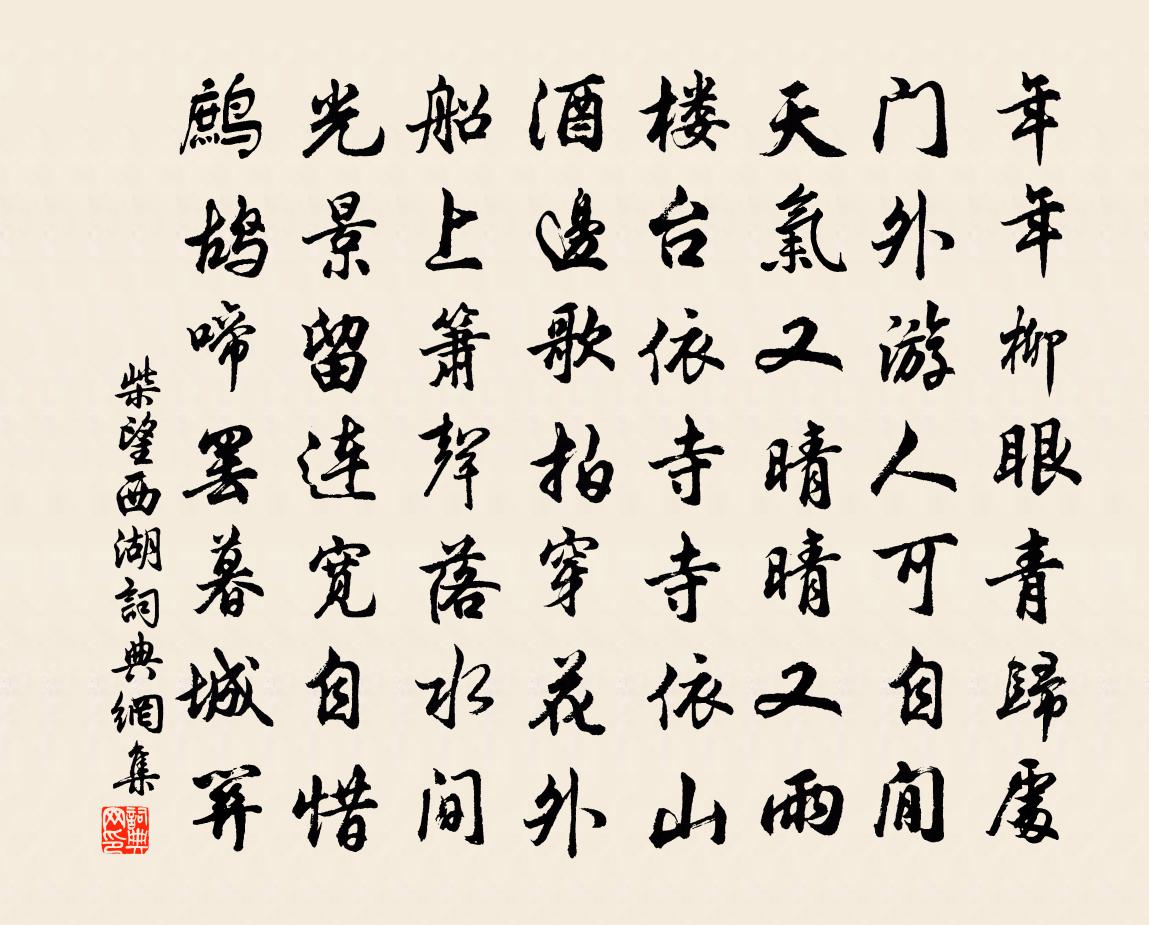 年年柳眼青歸處
门外游人可自閒
天氣又晴晴又雨
楼台依寺寺依山
酒邊歌拍穿花外
船上簫聲落水间
光景留连宽自惜
鷓鴣啼罢暮城关
柴望西湖詞典網集
詞典网印